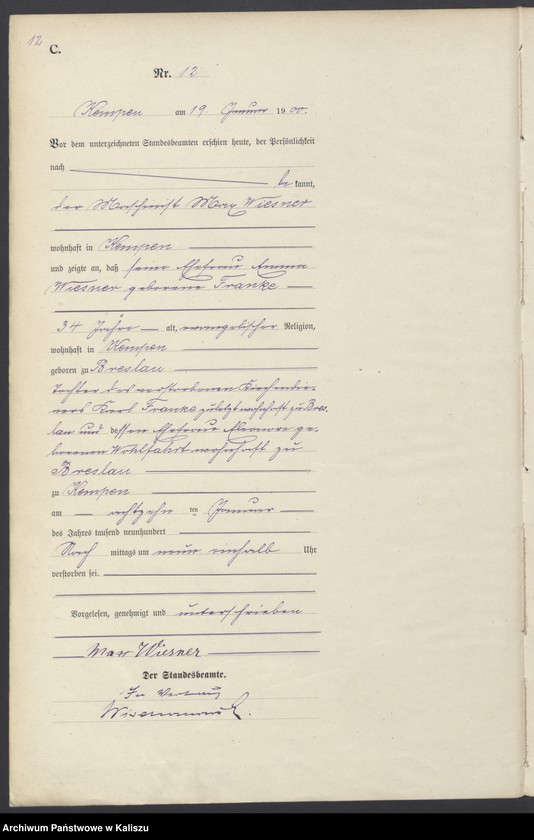 12
C.
Nr. 12
Kempen am 19. Januar 1900.
Vor dem unterzeichneten Standesbeamten erschien heute, der Persönlichkeit
nach
be kannt,
der Maschinist Max Wiesner
wohnhaft in Kempen
und zeigte an, daß seine Ehefrau Emma
Wiesner geborene Franke
34 Jahre alt, evangelischer Religion,
wohnhaft in Kempen
geboren zu Breslau
Tochter des verstorbenen Kirchendie-
ners Karl Franke zuletzt wohnhaft zu Bres-
lau und dessen Ehefrau Eleonore ge-
borenen Wohlfahrt wohnhaft zu
Breslau
zu Kempen
am achtzehn ten Januar
des Jahres tausend neunhundert
Nach mittags um neun einhalb Uhr
verstorben sei.
Vorgelesen, genehmigt und unterschrieben
Max Wiesner
Der Standesbeamte.
In Vertretung
Archiwum Państwowe w Kaliszu